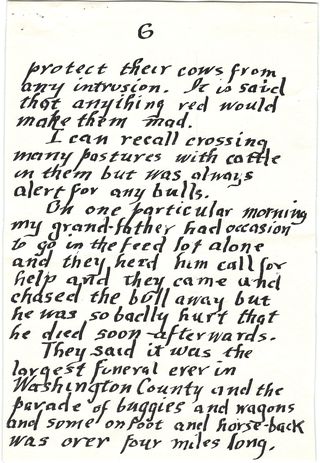 6
protect their cows from
any intrusion. It is said
that anything red would
make them mad.
I can recall crossing
many pastures with cattle
in them but was always
alert for any bulls.
On one particular morning
my grand-father had occasion
to go in the feed lot alone
and they herd him call for
help and they came and
chased the bull away but
he was so badly hurt that
he died soon afterwards.
They said it was the
largest funeral ever in
Washington County and the
parade of buggies and wagons
and some on foot and horse-back
was over four miles long.